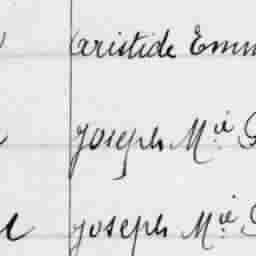 (aristide Emm
joseph M.ie
joseph M.ie